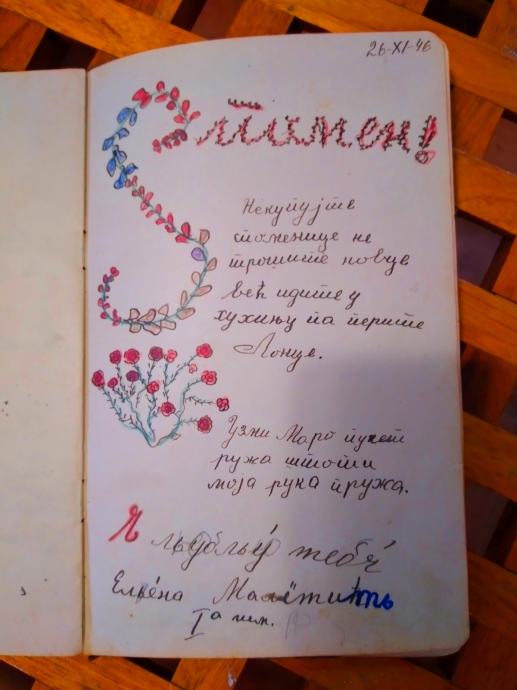 26-XI-46
Спомен!
Некупујте
споменице не
трошите новце
већ идите у
кухињу па перите
Лонце.
Узми Маро пукет
ружа штоти
моја рука пружа.
Я льубльу́ тебе́
Елье́на
I а